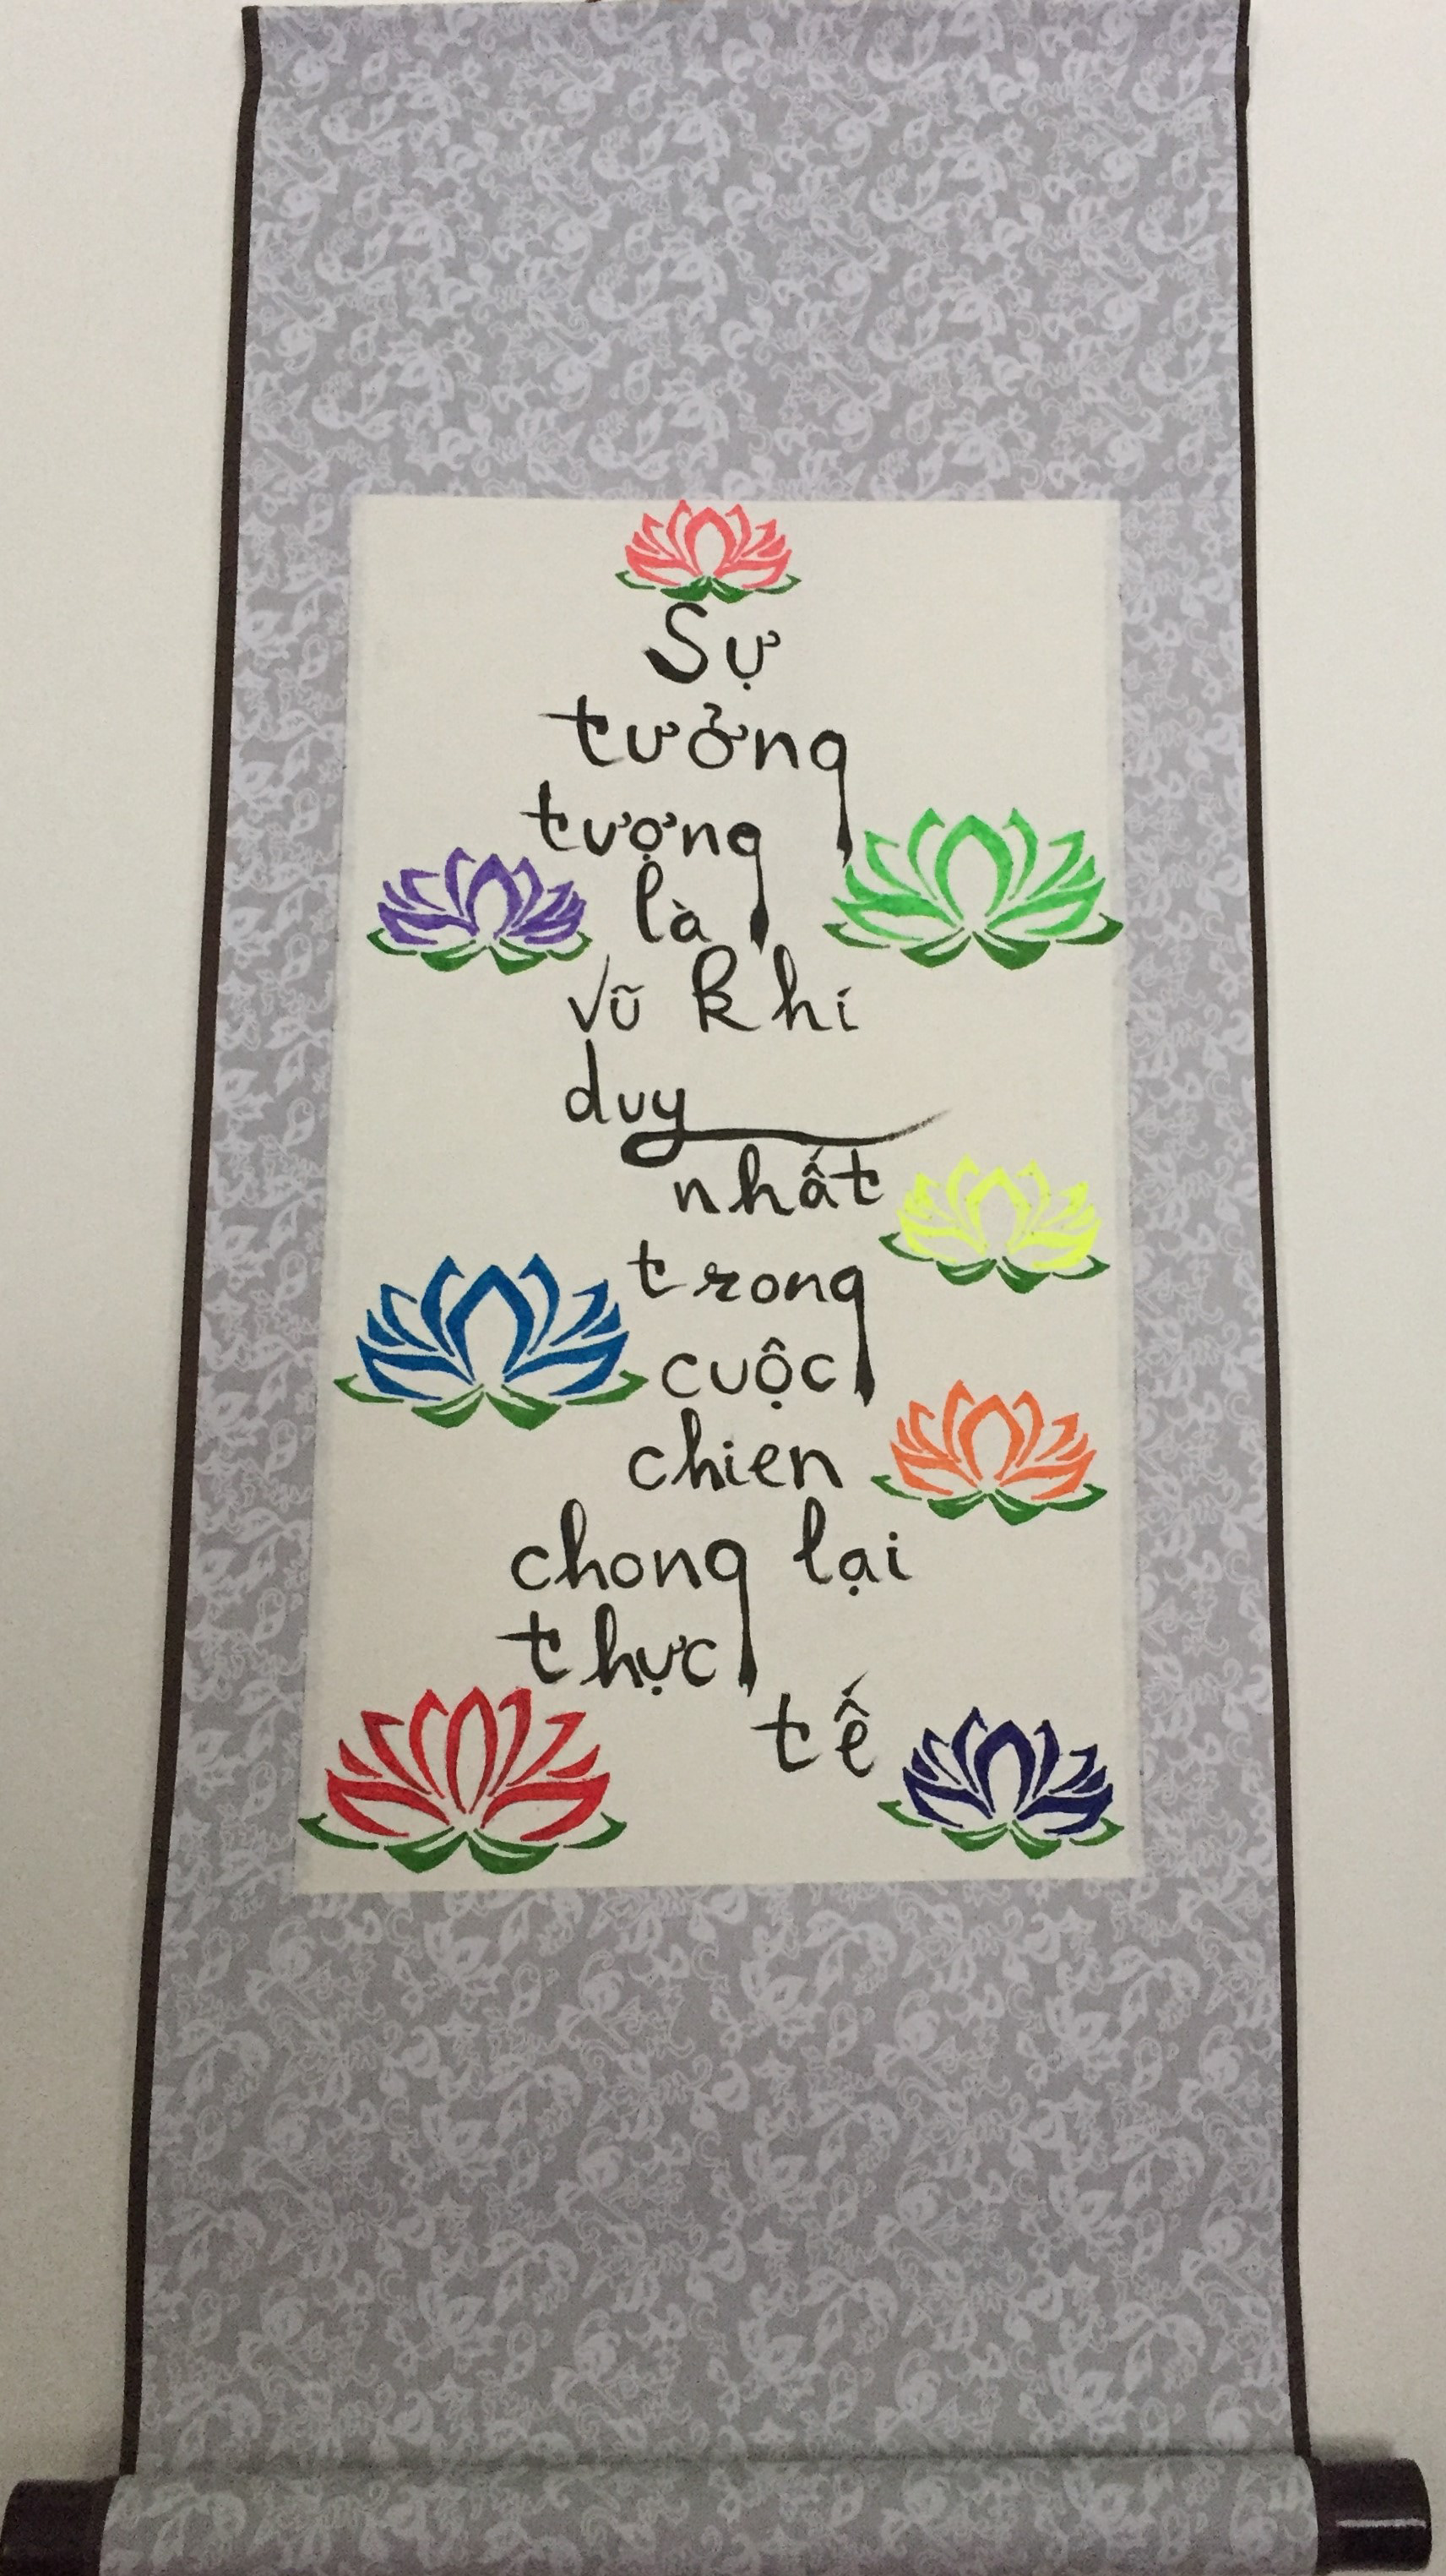 Sự
tưởng
tượng
là
vũ khí
duy
nhất
trong
cuộc
chien
chong lại
thực
tế